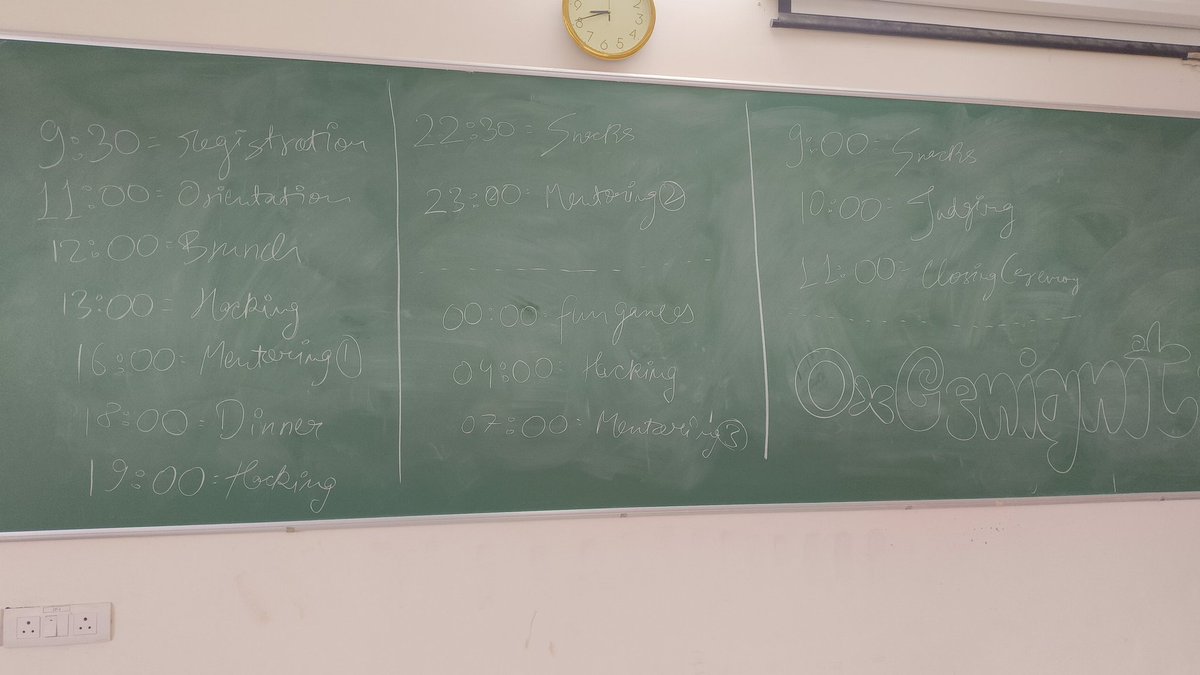 9:30 = registration
11:00 = Orientation
12:00 = Brunch
13:00 = Hacking
16:00 = Mentoring ①
18:00 = Dinner
19:00 = Hacking
22:30 = Snacks
23:00 = Mentoring ②
00:00 = fun games
04:00 = Hacking
07:00 = Mentoring ③
9:00 = Snacks
10:00 = Judging
11:00 = Closing Ceremony
0xGenignit
9
8
7
6
5
4
3
2